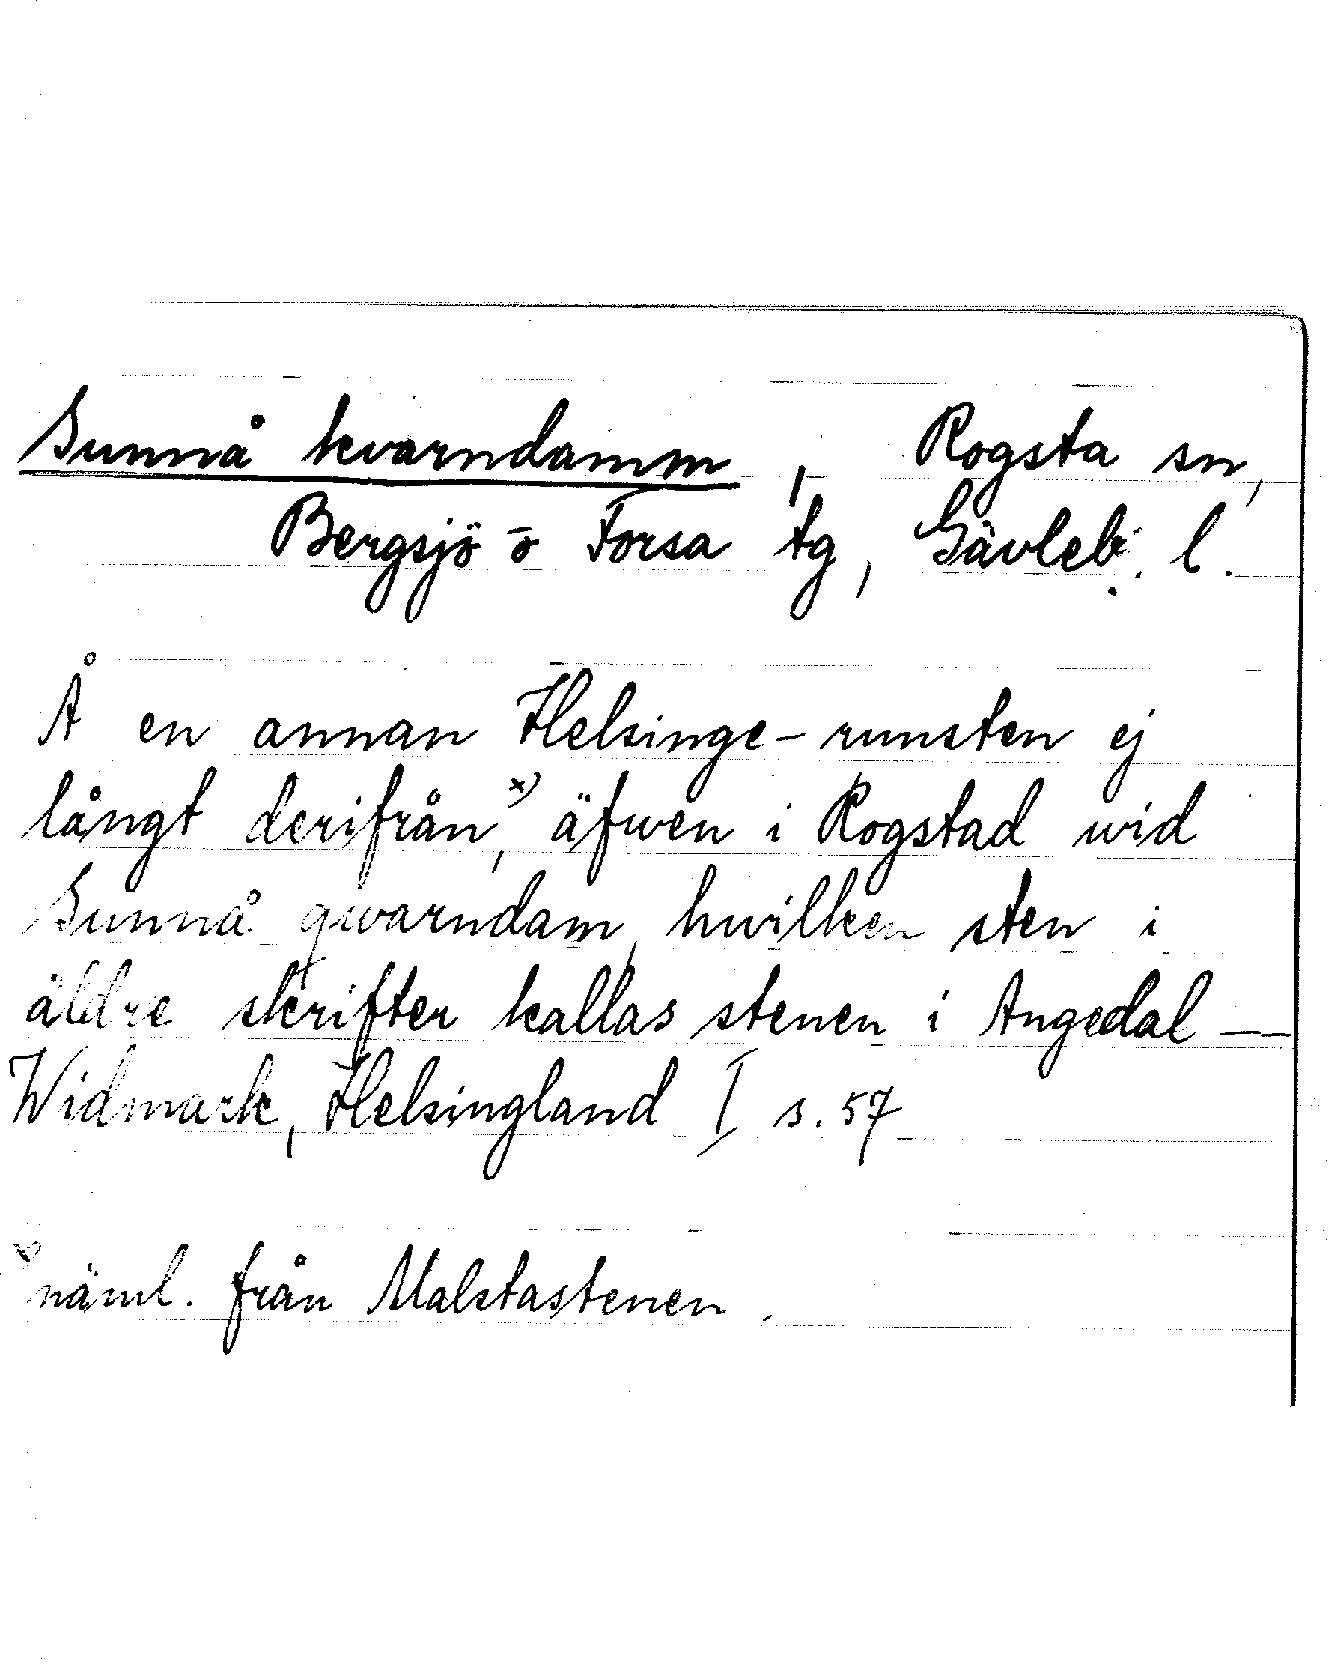 Sunnå kvarndamm, Rogsta sn,
Bergsjö o Forsa tg, Gävleb. l.
Å en annan Helsinge-runsten ej
långt derifrån,x) äfwen i Rogstad wid
Sunnå qwarndam, hwilken sten i
äldre skrifter kallas stenen i Angedal —
Widmark, Helsingland I s. 57
x) näml. från Malstastenen.